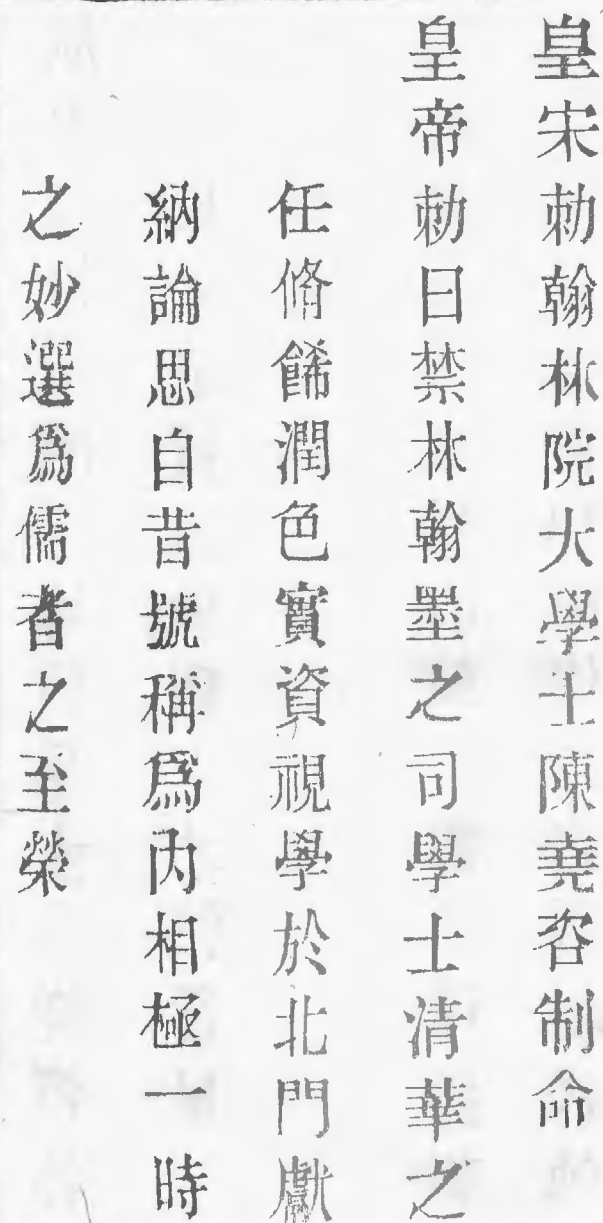 皇宋勅翰林院大學士陳堯咨制命
皇帝勅曰禁林翰墨之司學士清華之
任脩餙潤色實資視學於北門獻
納論思自昔號稱爲內相極一時
之妙選爲儒者之至榮